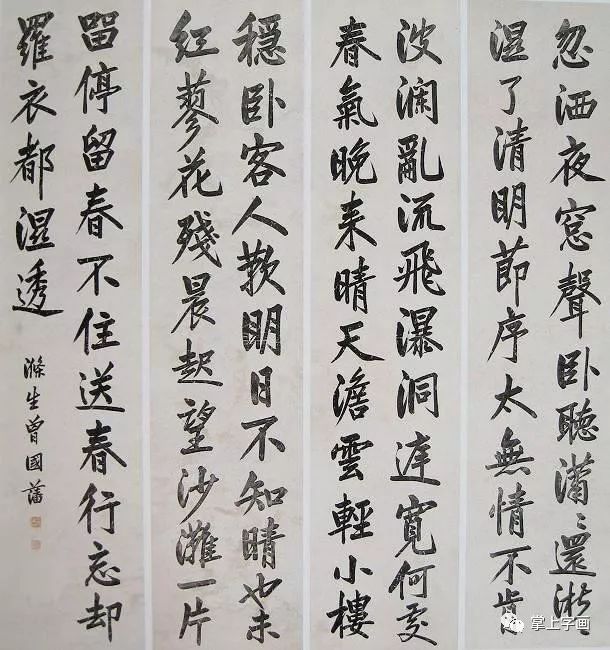 忽洒夜窓聲卧聽瀟〻還淅〻
濕了清明節序太無情不肯
波瀾亂流飛瀑洞逹寬何交
春氣晚来晴天澹雲輕小樓
穩卧客人歎明日不知晴也未
紅蓼花殘晨起望沙灘一片
畱停留春不住送春行忘却
羅衣都濕透
滌生曾國藩
掌上字画